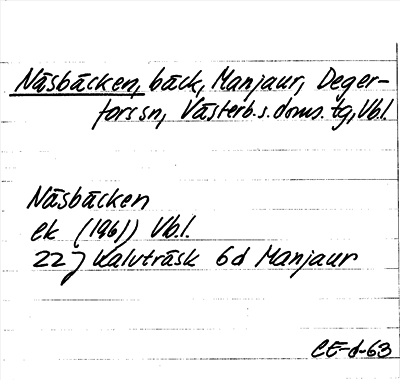 Näsbäcken, bäck, Manjaur, Deger-
forssn, Västerb.s.doms.tg, Vb.l.
Näsbäcken
ek (1961) Vb.l.
22J Kalvträsk 6d Manjaur
CE-d-63